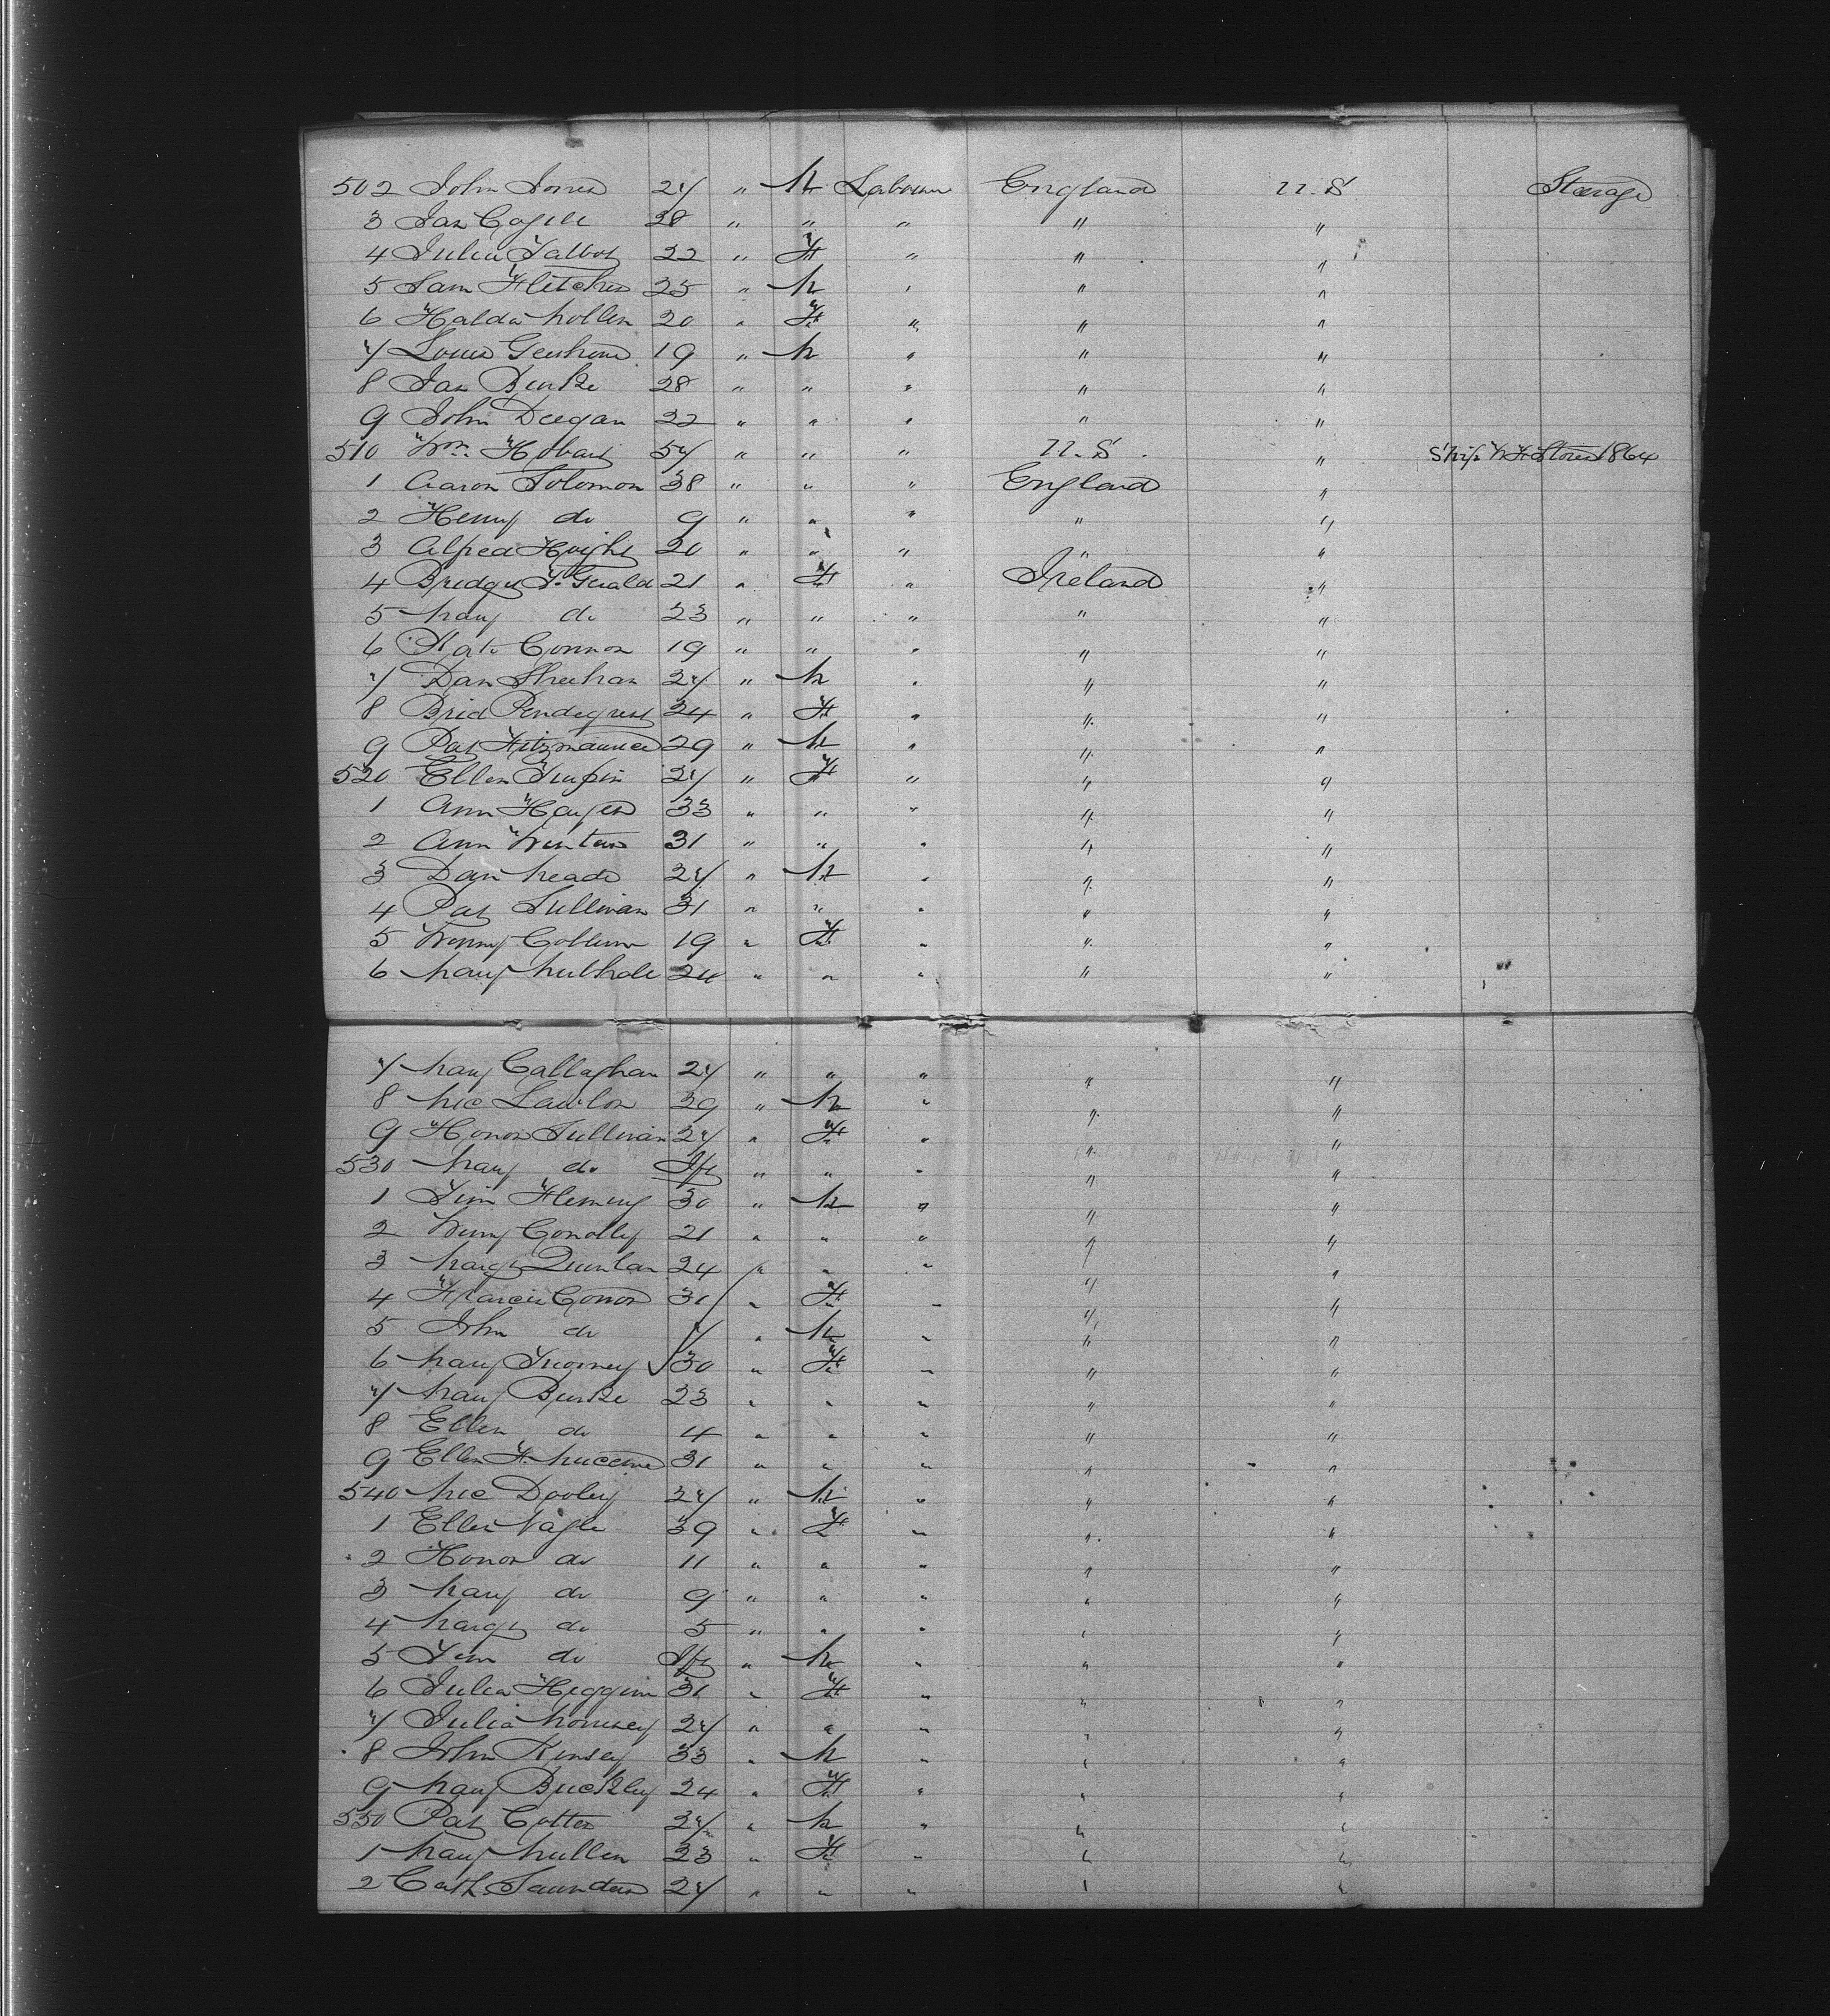 502 John Jones 27 " M Labourer England U.S Steerage
3 Jas Cogill 28 " " " " "
4 Julia Talbot 22 " F " " "
5 Sam Fletcher 25 " M " " "
6 Halda Mollen 20 " F " " "
7 Louis 19 " M " " "
8 Jas Burke 28 " " " " "
9 John Deegan 22 " " " " "
510 Wm. Hobart 57 " " " U.S. " Ship 1864
1 Aaron Solomon 38 " " " England "
2 Henry do 9 " " " " "
3 Alfred Hoight 20 " " " " "
4 Bridget F. Gerald 21 " F " Ireland "
5 Mary do 23 " " " " "
6 Kate Connor 19 " " " " "
7 Dan Sheehan 27 " M " " "
8 Brid Pendegrest 24 " F " " "
9 Pat Fitzmaurice 29 " M " " "
520 Ellen Turpin 27 " F " " "
1 Ann Hayes 33 " " " " "
2 Ann Winters 31 " " " " "
3 Dan Meade 27 " M " " "
4 Pat Sullivan 31 " " " " "
5 Winny Collum 19 " F " " "
6 Mary 24 " " " " "
7 Mary Callaghan 27 " " " " "
8 Mic Lawlor 39 " M " " "
9 Honor Sullivan 27 " F " " "
530 Mary do Inft " " " " "
1 Tim Fleming 30 " M " " "
2 Winny Conolly 21 " " " " "
3 Margt Quinlan 24 " " " " "
4 Francis Connor 31 " F " " "
5 John do 7 " M " " "
6 Mary Twomey 30 " F " " "
7 Mary Burke 23 " " " " "
8 Ellen do 4 " " " " "
9 Ellen 31 " " " " "
540 Mic Dooley 27 " M " " "
1 Ellen Nagle 39 " F " " "
2 Honor do 11 " " " " "
3 Mary do 9 " " " " "
4 Margt do 5 " " " " "
5 Tim do Inft " M " " "
6 Julia Higgins 31 " F " " "
7 Julia 27 " " " " "
8 John Kinsey 33 " M " " "
9 Mary Buckley 24 " F " " "
550 Pat Cotter 27 " M " " "
1 Mary Mullen 23 " F " " "
2 Cath. Saunders 27 " " " " "